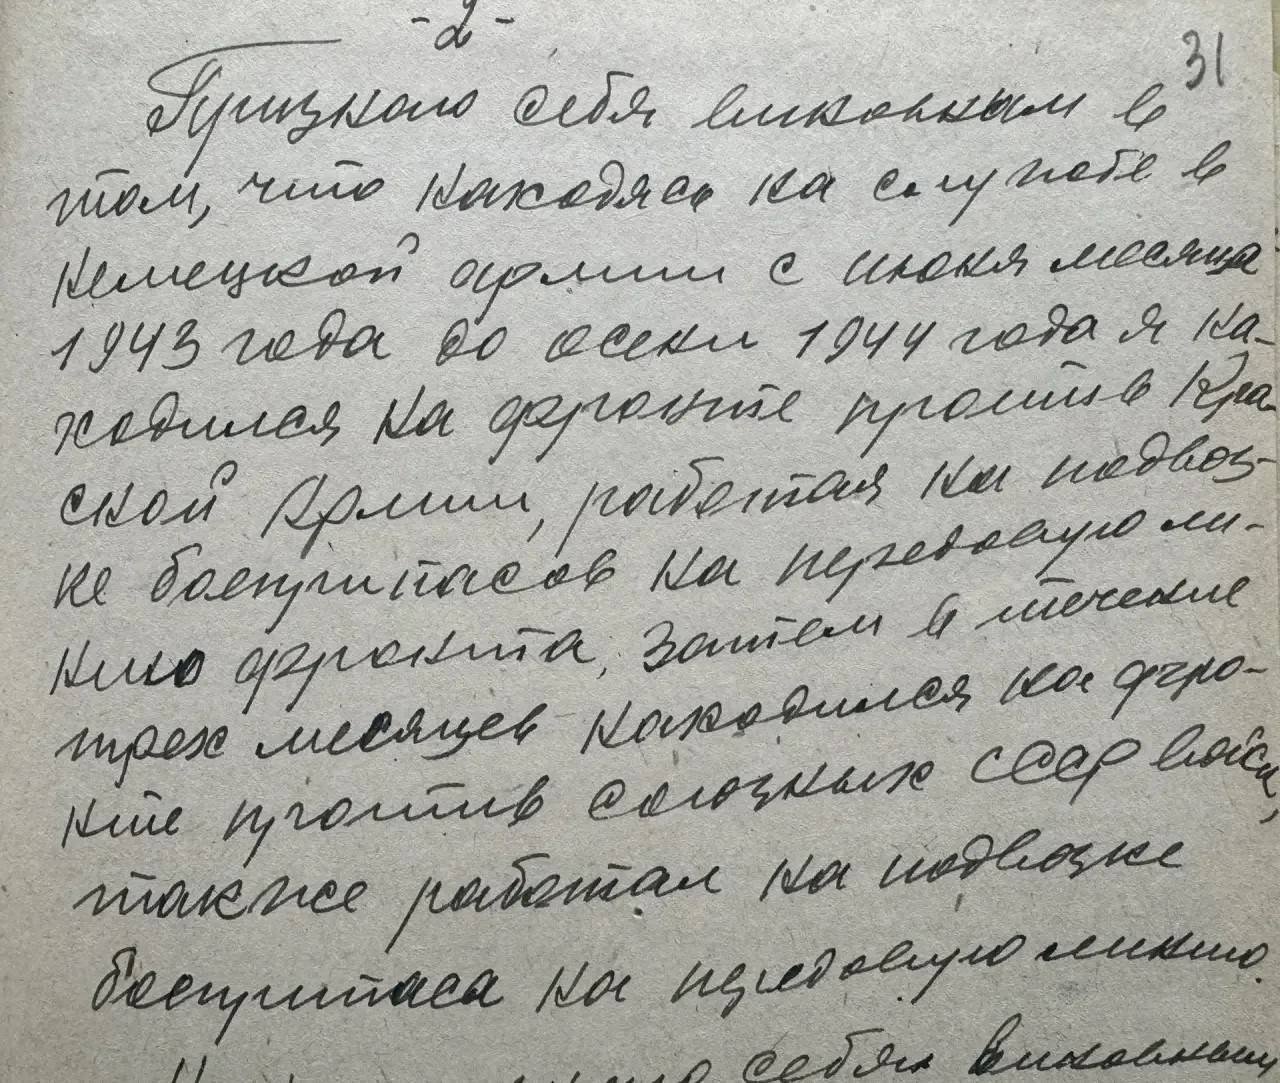 -2-
31
Признаю себя виновным в
том, что находясь на службе в
немецкой армии с июня месяца
1943 года до осени 1944 года я на-
ходился на фронте против Кра-
ской Армии, работая на подвоз-
ке боеприпасов на передовую ли-
нию фронта, затем в течение
трех месяцев находился на фро-
нте против союзных СССР войск,
также работал на подвозке
боеприпаса на передовую линию.
себя виновным